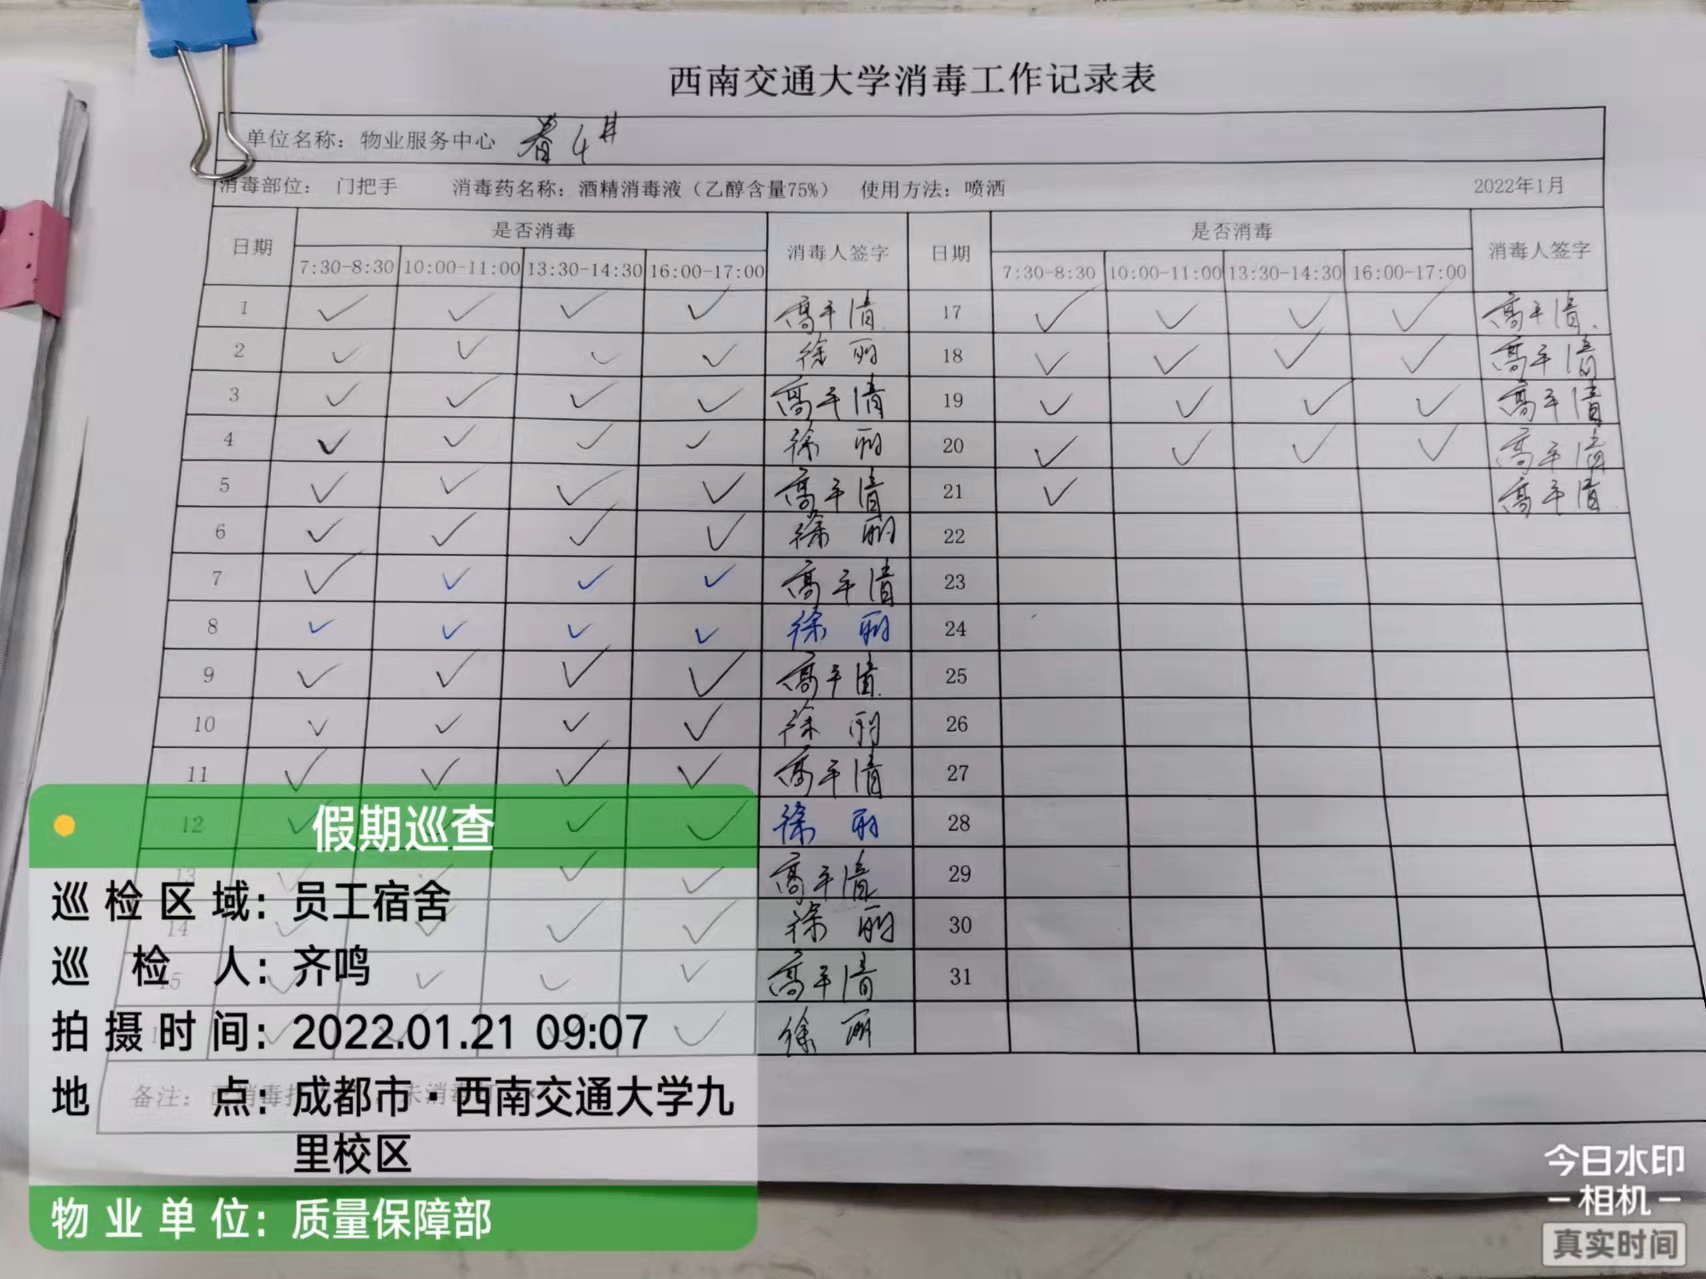 西南交通大学消毒工作记录表
单位名称：物业服务中心 4#
消毒部位： 门把手 消毒药名称：酒精消毒液（乙醇含量75%） 使用方法：喷洒 2022年1月
日期 是否消毒 消毒人签字 日期 是否消毒 消毒人签字
7:30-8:30 10:00-11:00 13:30-14:30 16:00-17:00 7:30-8:30 10:00-11:00 13:30-14:30 16:00-17:00
1 ✓ ✓ ✓ ✓ 高平清 17 ✓ ✓ ✓ ✓ 高平清
2 ✓ ✓ ✓ ✓ 徐丽 18 ✓ ✓ ✓ ✓ 高平清
3 ✓ ✓ ✓ ✓ 高平清 19 ✓ ✓ ✓ ✓ 高平清
4 ✓ ✓ ✓ ✓ 徐丽 20 ✓ ✓ ✓ ✓ 高平清
5 ✓ ✓ ✓ ✓ 高平清 21 ✓ 高平清
6 ✓ ✓ ✓ ✓ 徐丽 22
7 ✓ ✓ ✓ ✓ 高平清 23
8 ✓ ✓ ✓ ✓ 徐丽 24
9 ✓ ✓ ✓ ✓ 高平清 25
10 ✓ ✓ ✓ ✓ 徐丽 26
11 ✓ ✓ ✓ ✓ 高平清 27
12 ✓ ✓ ✓ 徐丽 28
13 ✓ ✓ ✓ ✓ 高平清 29
14 ✓ ✓ ✓ ✓ 徐丽 30
15 ✓ ✓ ✓ ✓ 高平清 31
✓ ✓ ✓ ✓ 徐丽
备注：
假期巡查
巡检区域：员工宿舍
巡检人：齐鸣
拍摄时间：2022.01.21 09:07
地点：成都市·西南交通大学九
里校区
物业单位：质量保障部
今日水印
相机
真实时间